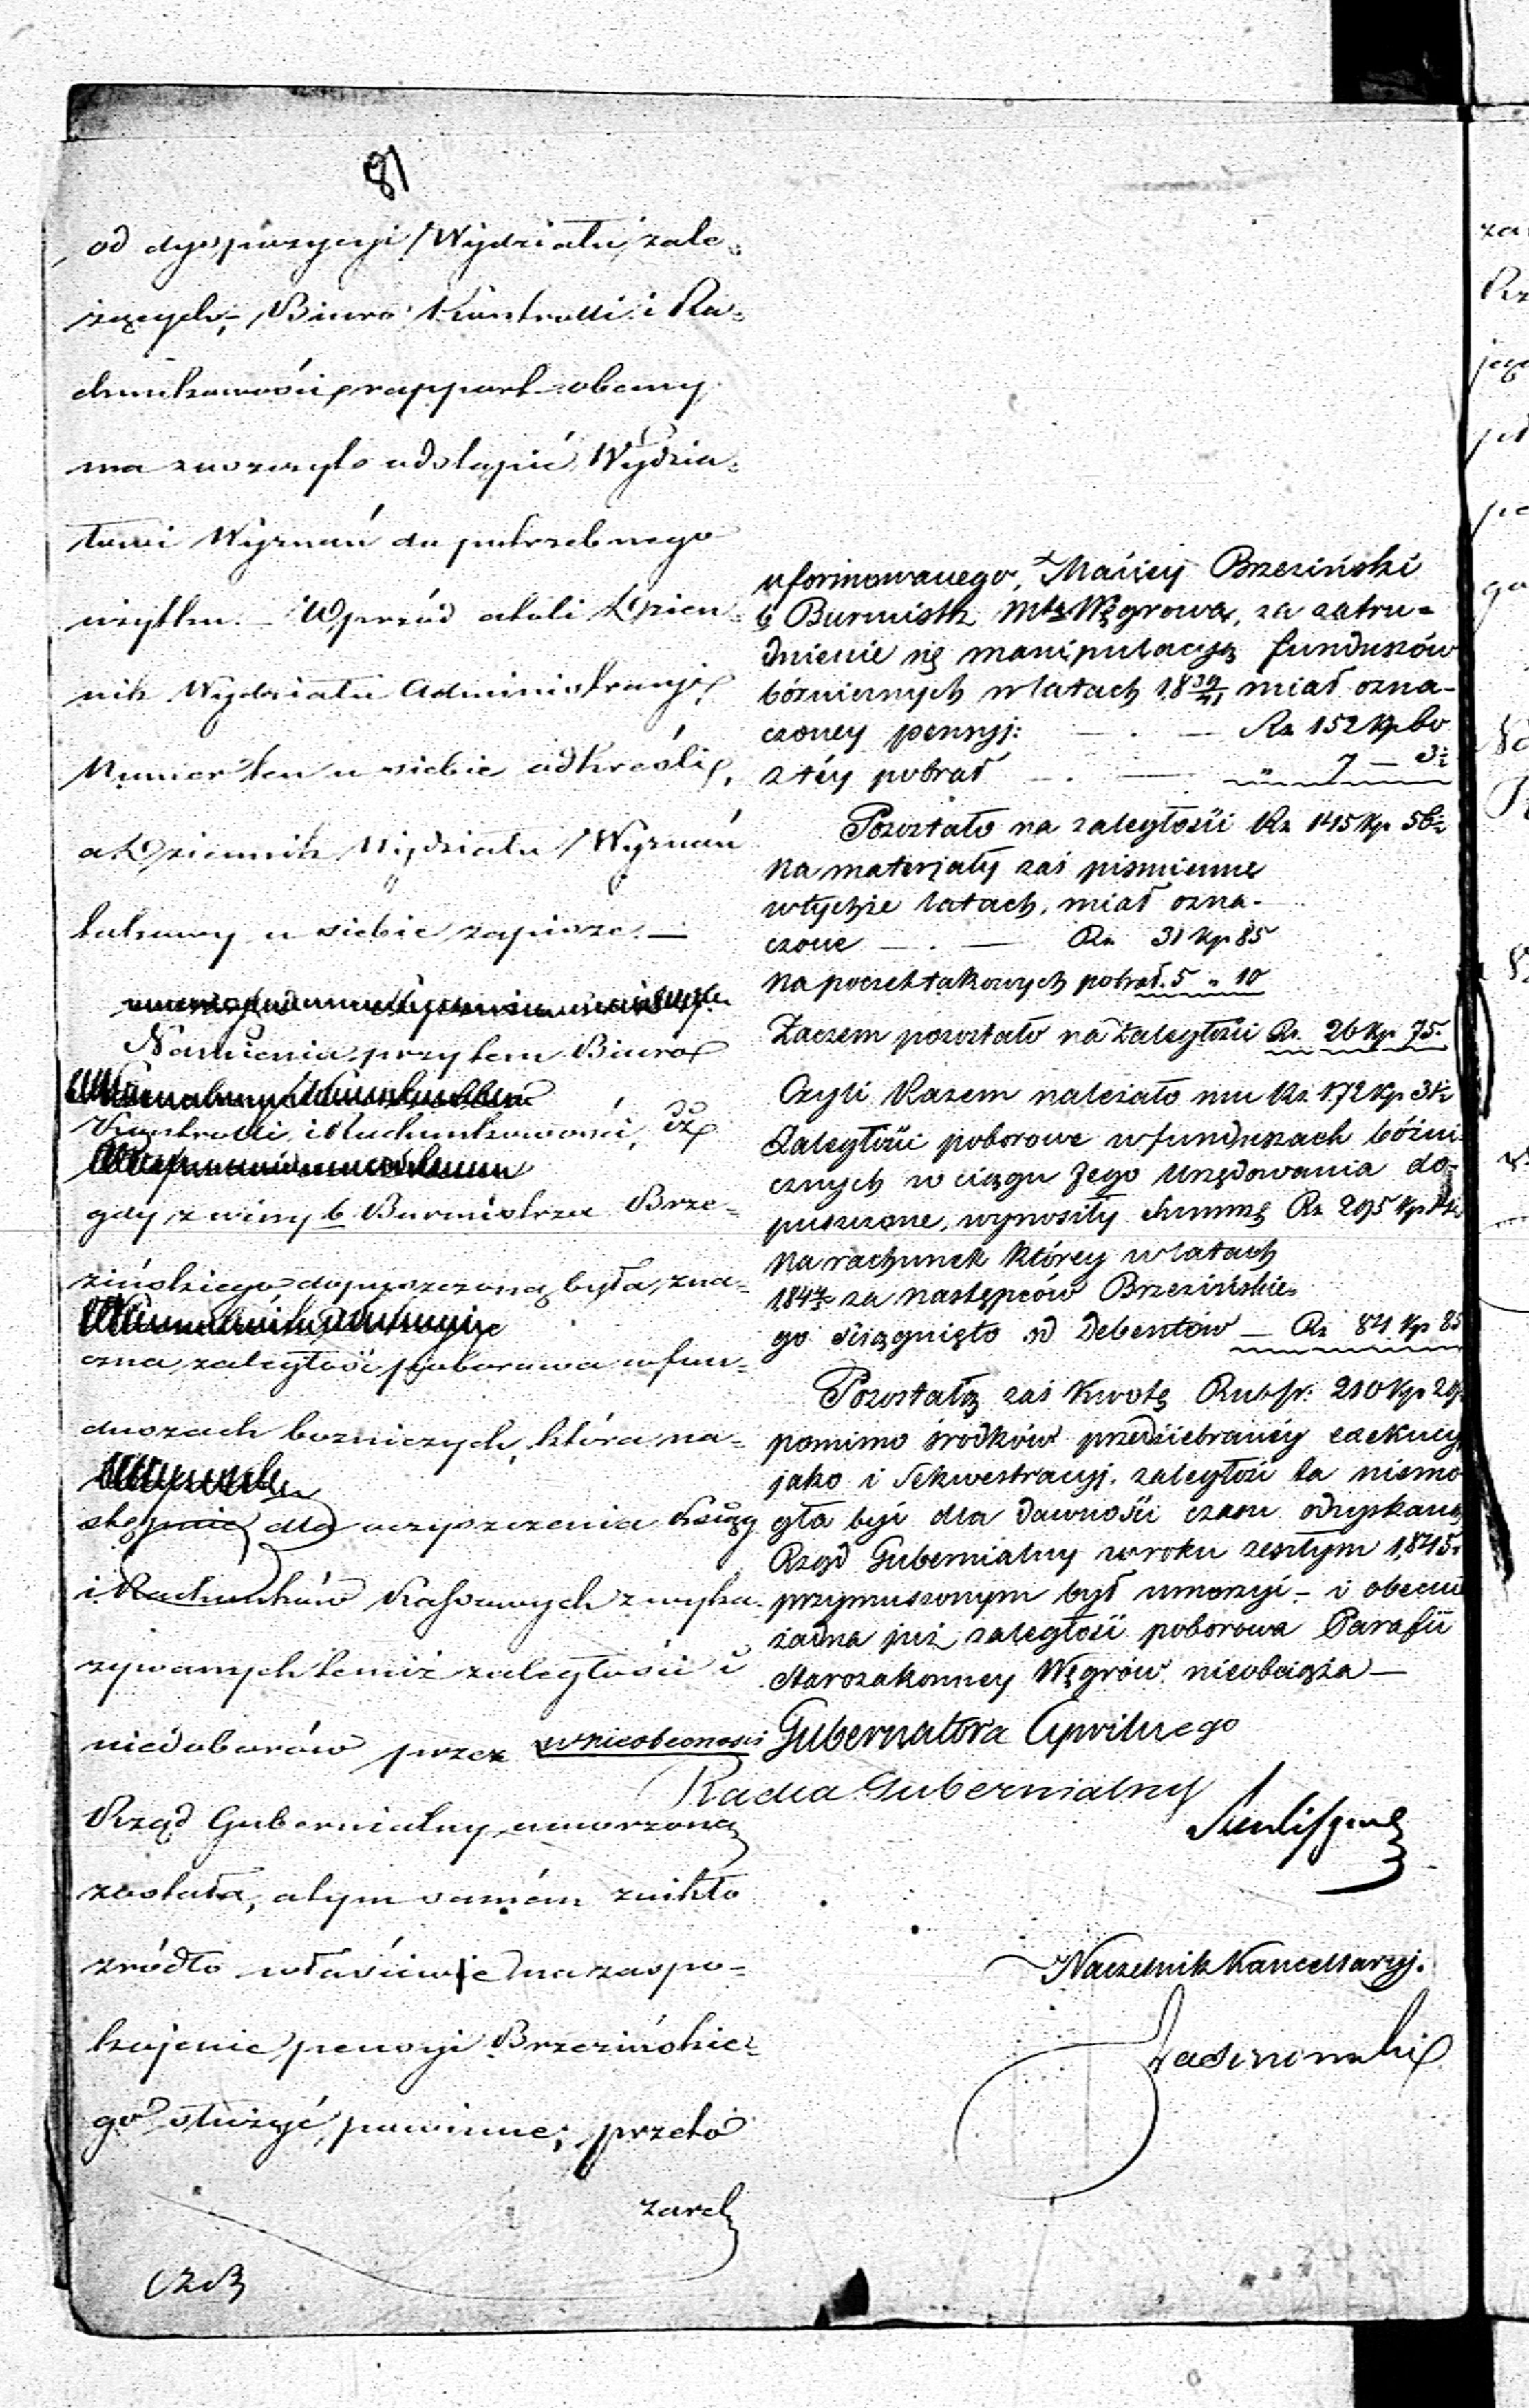 81
od dyspozycyi Wydziału zale-
żących, Biuro Kontrolli i Ra-
chunkowości, rapport obecny
ma zaszczyt odstąpić Wydzia-
łowi Wyznań do potrzebnego
użytku. – Wprzód atoli Dzien-
nik Wydziału Administracyi
Numer ten u siebie odkreśli,
a Dziennik Wydziału Wyznań
takowy u siebie zapisze. —
Namienia przytem Biuro
Kontrolli i Rachunkowości, że
gdy z winy b. Burmistrza Brze-
zińskiego dopuszczoną była zna-
czna zaległość poborowa w fun-
duszach bożniczych, która na-
stępnie dla oczyszczenia Ksiąg
i Rachunków Kassowych z wyka-
zywanych temiż zaległości i
niedoborów przez
Rząd Gubernialny umorzoną
została, a tym samém znikło
źródło właściwie na zaspo-
kojenie pensyi Brzezińskie-
go służyć powinne; przeto
zared
uformowanego, Maciej Brzeziński
b Burmistrz Mta Węgrowa, za zatru-
dnienie się manipulacyą funduszów
bóżnicznych w latach 1839/41 miał ozna-
czoney pensyj: — . — Rs 152 Kp 60
z téy pobrał — . — " 7 — 3½
Pozostało na zaległości Rs 145 Kp 56½
Na materjały zaś piśmienne
w tychże latach, miał ozna-
czone — . — Rs 31 Kp 85
na poczet takowych pobrał. 5 " 10
Zaczem pozostało na Zaległości Rs. 26 Kp 75.
Czyli Razem należało mu Rs 172 Kp 31½
Zaległości poborowe w funduszach bóżni-
cznych w ciągu Jego Urzędowania do-
puszczone, wynosiły Summę Rs 295 Kp
Na rachunek którey w latach
za następców Brzezińskie-
go ściągnięto od Debentów — Rs 84 Kp 85
Pozostałą zaś Kwotę Rubsr: 210 Kp 29
pomimo środków przedsiebranéy exekucyi
jako i Sekwestracyj. zaległość ta niemo
gła być dla dawności czasu odzyskaną
Rząd Gubernialny w roku zeszłym 1845.
przymuszonym był umorzyć – i obecnie
żadna już zaległość poborowa Parafii
Starozakonney Węgrów nieobciąża —
w nieobecności Gubernatora Cywilnego
Radca Gubernialny
Naczelnik Kancellaryj.